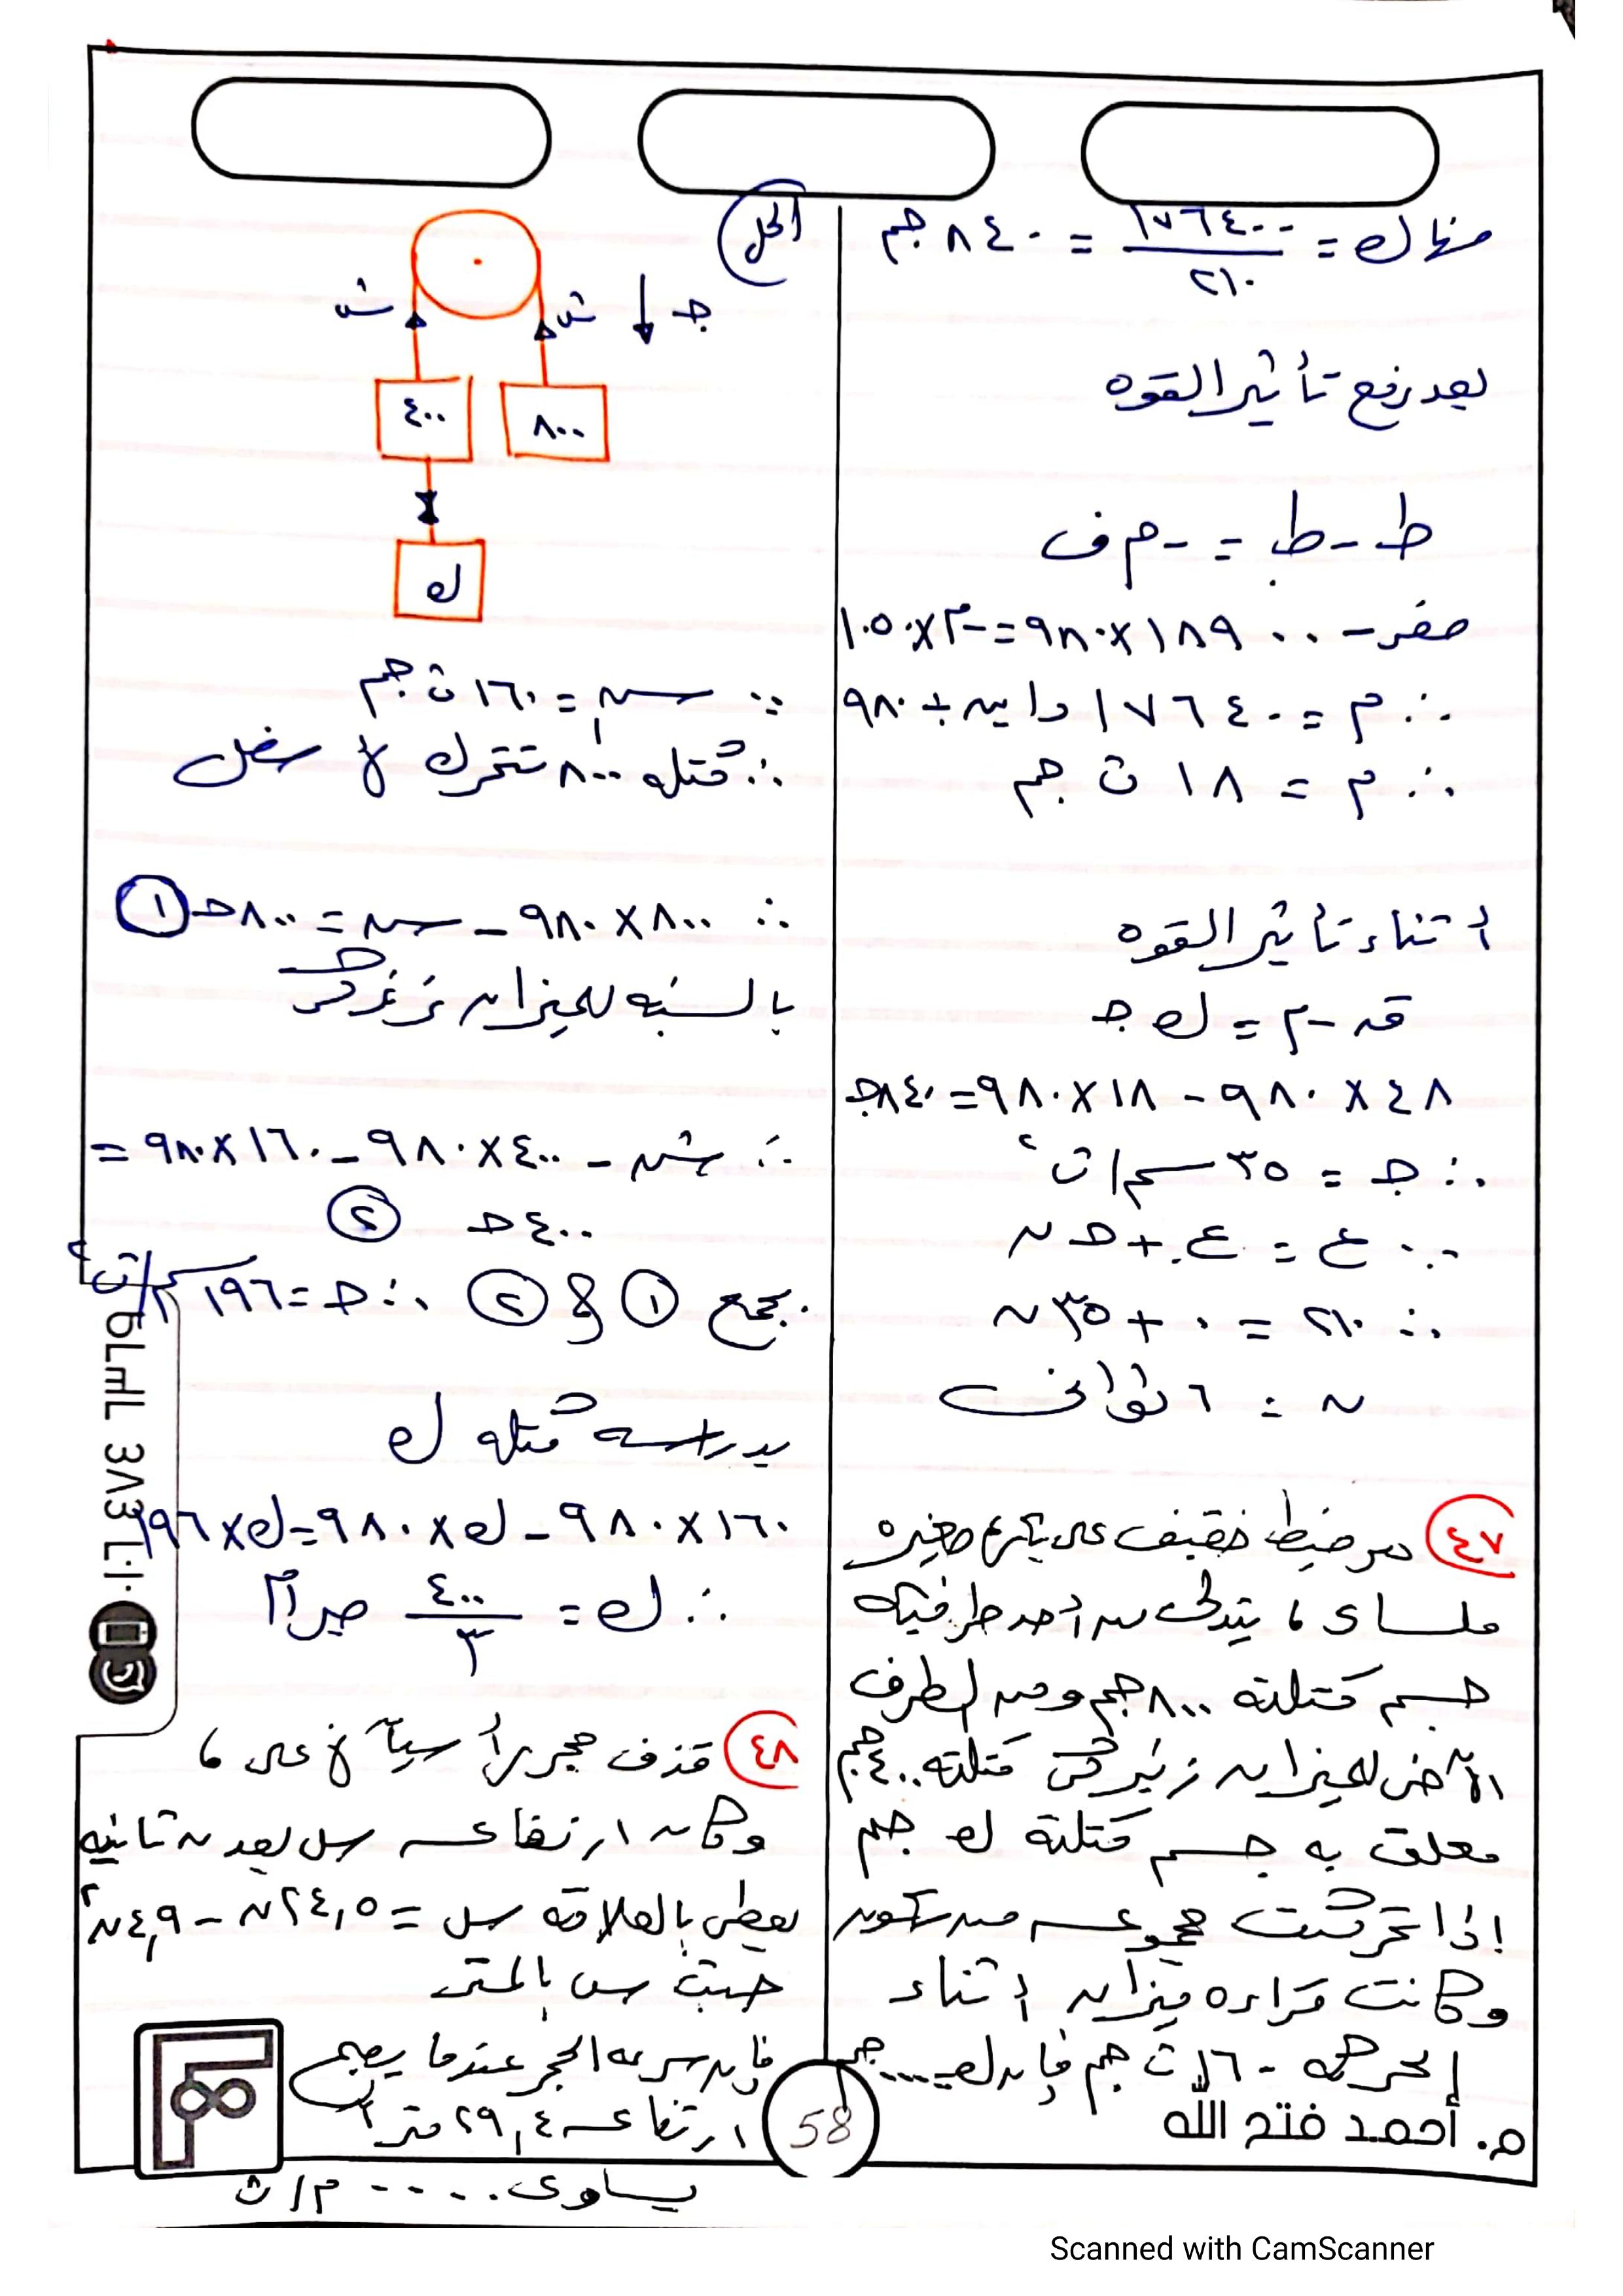 منها ك = ١٧٦٤٠٠ / ٢١٠ = ٨٤٠ جم
بعد رفع تأثير القوه
ط - ط. = - م ف
صفر - ١٨٩٠٠ × ٩٨٠ = - م × ١٠٥٠
∴ م = ١٧٦٤٠ داين ÷ ٩٨٠
∴ م = ١٨ ث جم
أثناء تأثير القوه
ق - م = ك جـ
٤٨ × ٩٨٠ - ١٨ × ٩٨٠ = ٨٤٠ جـ
∴ جـ = ٣٥ سم/ث٢
∵ ع = ع. + حـ ن
∴ ٢١٠ = ٠ + ٣٥ ن
ن = ٦ ثواني
٤٧ مر خيط خفيف على بكره صغيره
ملساء ، يتدلى من أحد طرفيه
جسم كتلته ٨٠٠ جم ومن الطرف
الآخر لميزان زنبركى كتلته ٤٠٠ جم
معلق به جسم كتلته ك جم
إذا تحركت مجموعه من سكون
وكانت قراءه ميزان أثناء
الحركه ١٦٠ ث جم فإن ك = .... جم
الحل
ش
ش
جـ
٤٠٠
٨٠٠
ك
∵ ش١ = ١٦٠ ث جم
∴ كتله ٨٠٠ تتحرك لأسفل
∴ ٨٠٠ × ٩٨٠ - ش = ٨٠٠ حـ ١
بالنسبه للميزان زنبركى
∴ ش - ٤٠٠ × ٩٨٠ - ١٦٠ × ٩٨٠ =
٤٠٠ حـ ٢
بجمع ١ & ٢ ∴ حـ = ١٩٦ سم/ث٢
بدراسه كتله ك
١٦٠ × ٩٨٠ - ك × ٩٨٠ = ك × ١٩٦
∴ ك = ٤٠٠ / ٣ جرام
٤٨ قذف حجر رأسياً لأعلى ،
وكان ارتفاعه س بعد ن ثانيه
يعطى بالعلاقه س = ٢٤,٥ ن - ٤,٩ ن٢
حيث س بالمتر
فإن سرعه الحجر عندما يصبح
ارتفاعه ٢٩,٤ متراً
يساوى ..... م/ث
58
م. أحمد فتح الله
Scanned with CamScanner